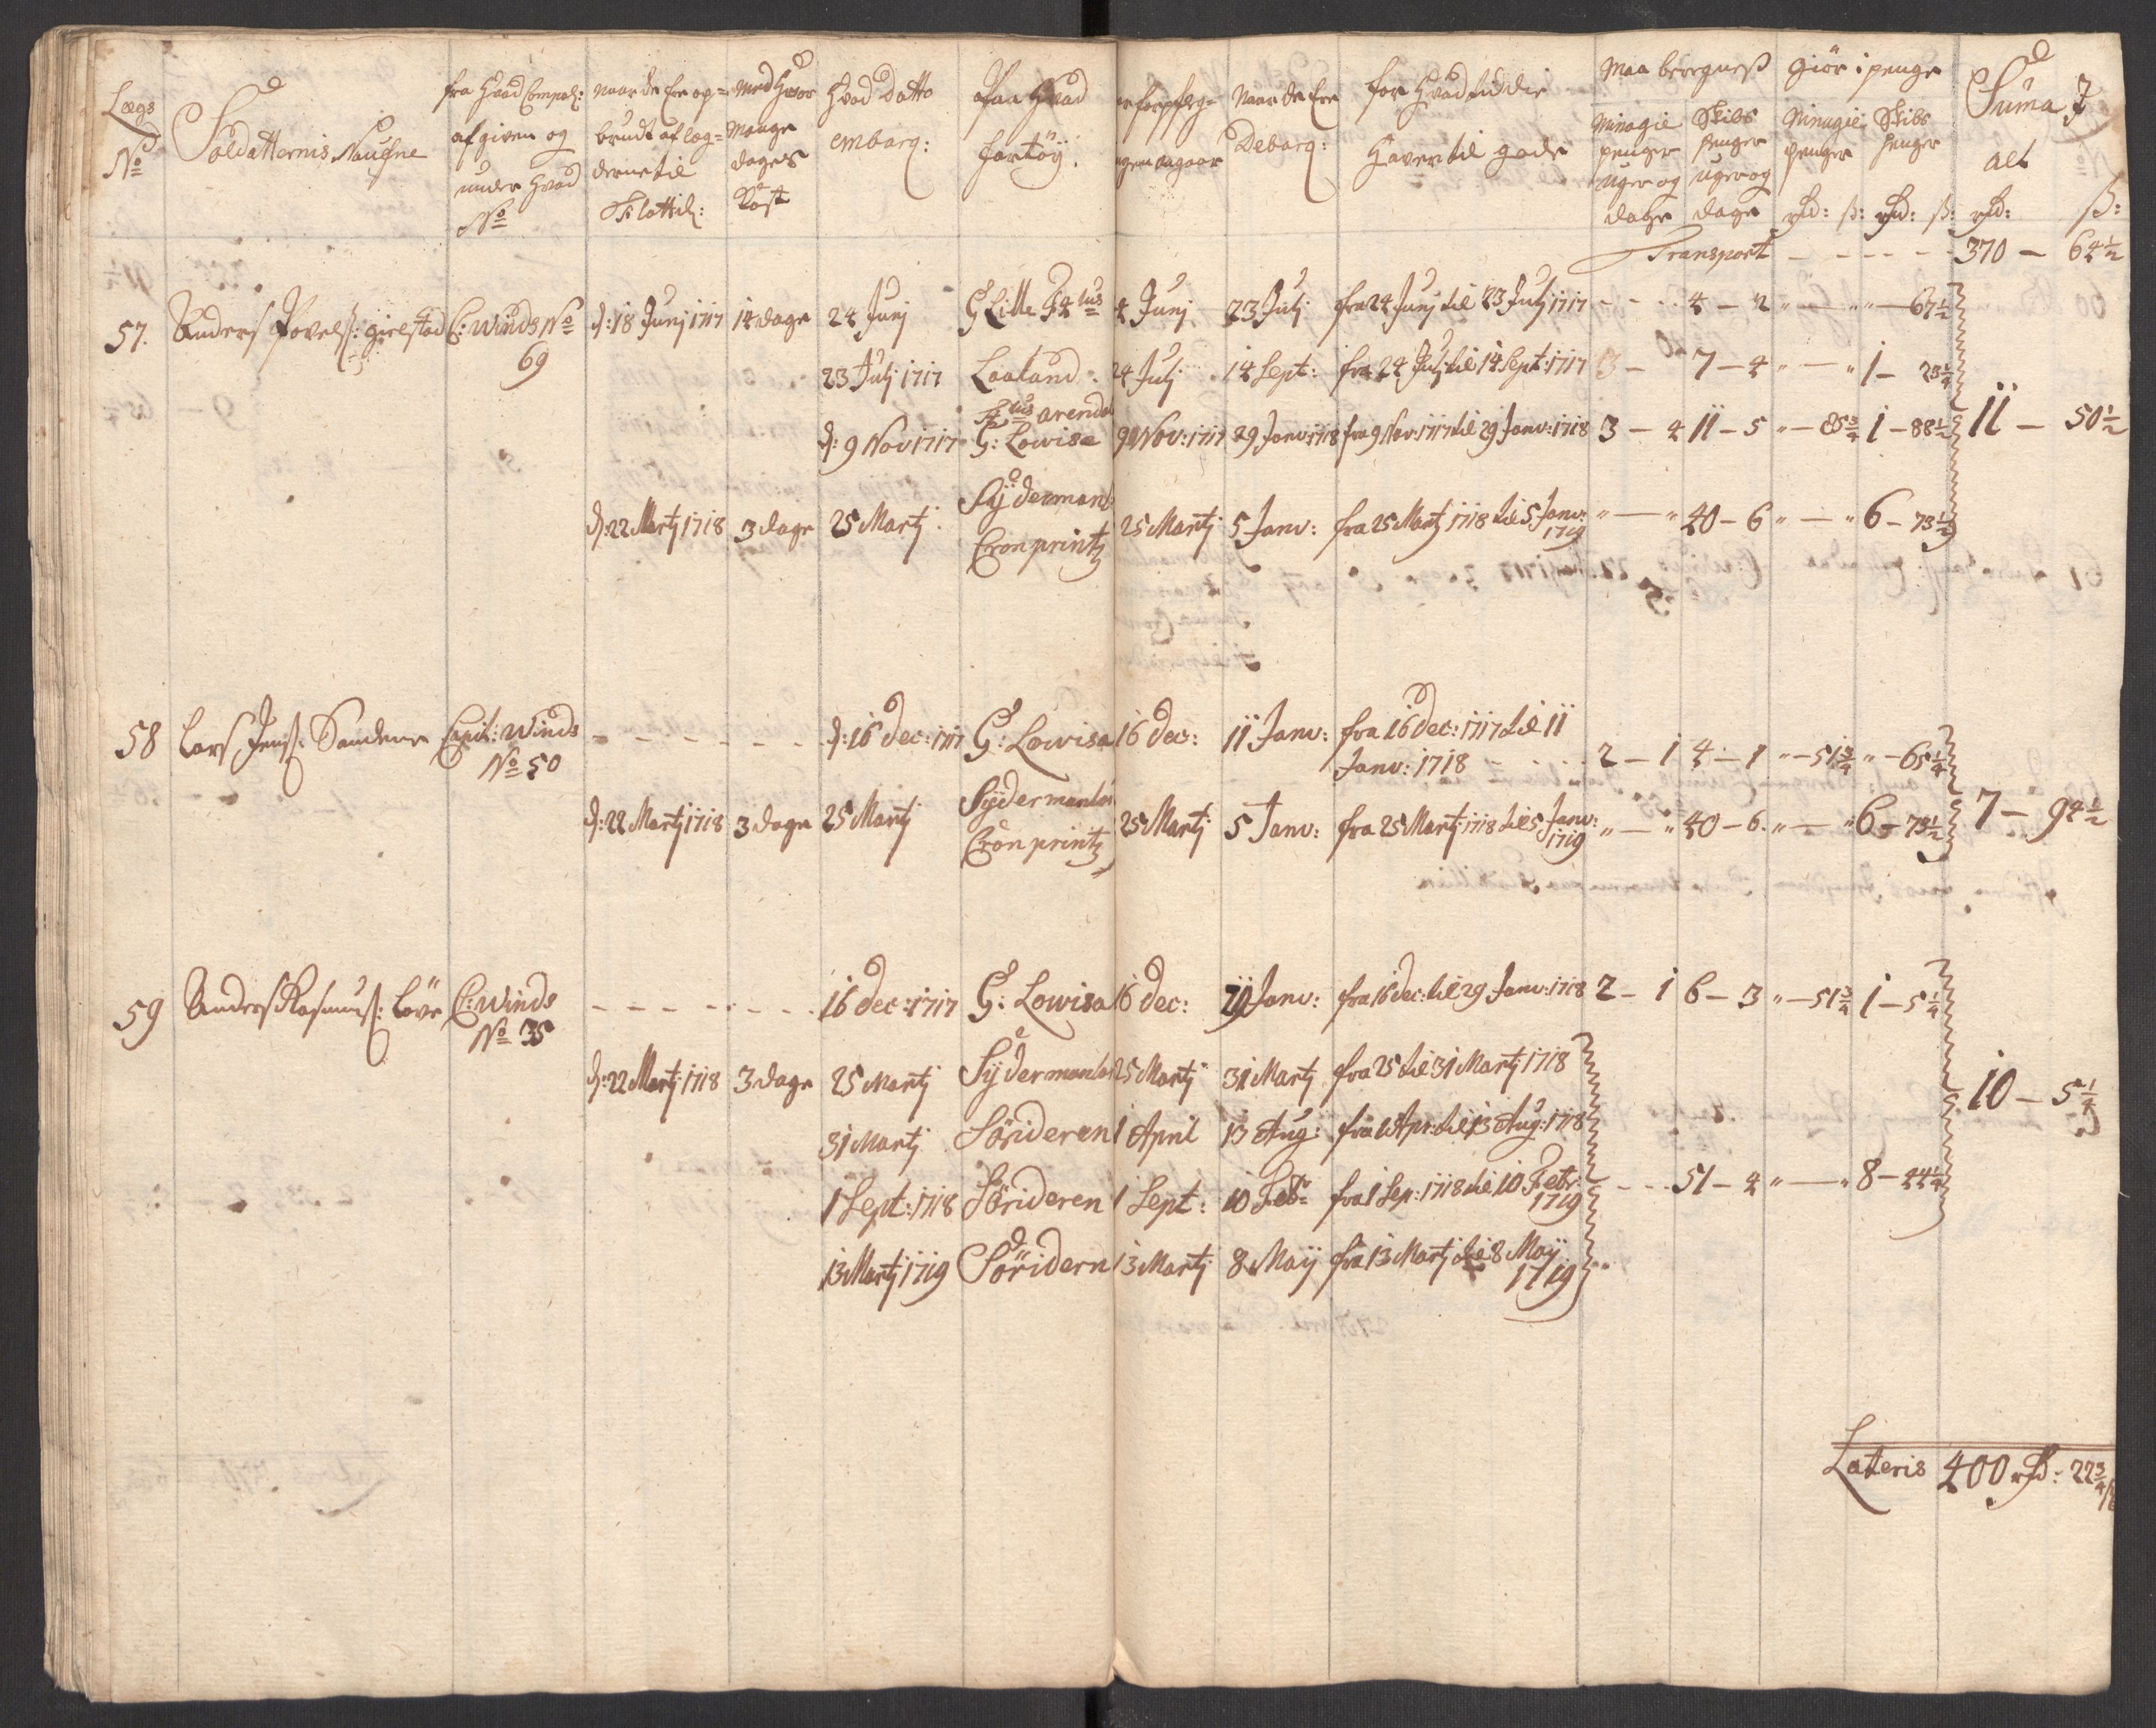 Lægs No
Soldatternis Naufne
fra Hvad Compag: afgiven og under Hvad No
naar de Ere op= brudt af læg= derne til Flottil:
Med Hvor Mange dages Kost
Hvad Datto embarq:
Paa Hvad fartöy:
Naar de Ere Debarq:
for Hvad tid die Haver til gode
Maa beregneß
Giör i penge
Minagie penger uger og dage
Skibs penger uger og dage
Minagie penger rd: ß:
Skibs penger rd: ß:
Suma alt rd: ß:
Transport - - - - - 370 - 64½
57. Anders Povelß: gielstad C: Winds No 69 d: 18 Junj 1717 14 dage 24 Junj 4 Junj 23 Julj fra 24 Junj til 23 Julj 1717 - - - 4 - 2 " - " " - 67½
23 Julj 1717 Laaland 24 Julj 14 Sept: fra 24 Julj til 14 Sept: 1717 7 - 4 " - " 1 - 23¼
d: 9 Nov 1717 G: Lowisa 9 Nov: 1717 29 Janv: 1718 fra 9 Nov: 1717 til 29 Janv: 1718 3 - 4 11 - 5 " - 85¾ 1 - 88½ 11 - 50½
d: 22 Martj 1718 3 dage 25 Martj Sÿdermanl Cronprintz 25 Martj 5 Janv: fra 25 Martj 1718 til 5 Janv: 1719 " - " 40 - 6 " - " 6 - 73½
58 Lars Jenß: Sandene Capit: Winds No 50 - - - - - - d: 16 Dec: 1717 G: Lowisa 16 Dec: 11 Janv: fra 16 Dec: 1717 til 11 Janv: 1718 - - - 2 - 1 4 - 1 " - 51¾ " - 65¼
d: 22 Martj 1718 3 dage 25 Martj Sÿdermanlan Cronprintz 25 Martj 5 Janv: fra 25 Martj 1718 til 5 Janv: 1719 " - " 40 - 6 " - " 6 - 73½ 7 - 94½
59 Anders Rasmusß: Löve C: Winds No 35 - - - - - - 16 Dec: 1717 G: Lowisa 16 Dec: 29 Janv: fra 16 dec: til 29 Janv: 1718 2 - 1 6 - 3 " - 51¾ 1 - 5¼
d: 22 Martj 1718 3 dage 25 Martj Sÿdermanlan 25 Martj 31 Martj fra 25 til 31 Martj 1718
10 - 5¼
31 Martj Sörideren 1 April 13 Aug: fra 1 Apr: til 13 Aug: 1718
1 Sept: 1718 Sörideren 1 Sept: 10 Feb: fra 1 Sep: 1718 til 10 Febr: 1719 - - - 51 - 4 " - " 8 - 44¼
13 Martj 1719 Söridern 13 Martj 8 Maÿ fra 13 Martj til 8 Maÿ 1719
Lateris 400 rd: 22¾ ß